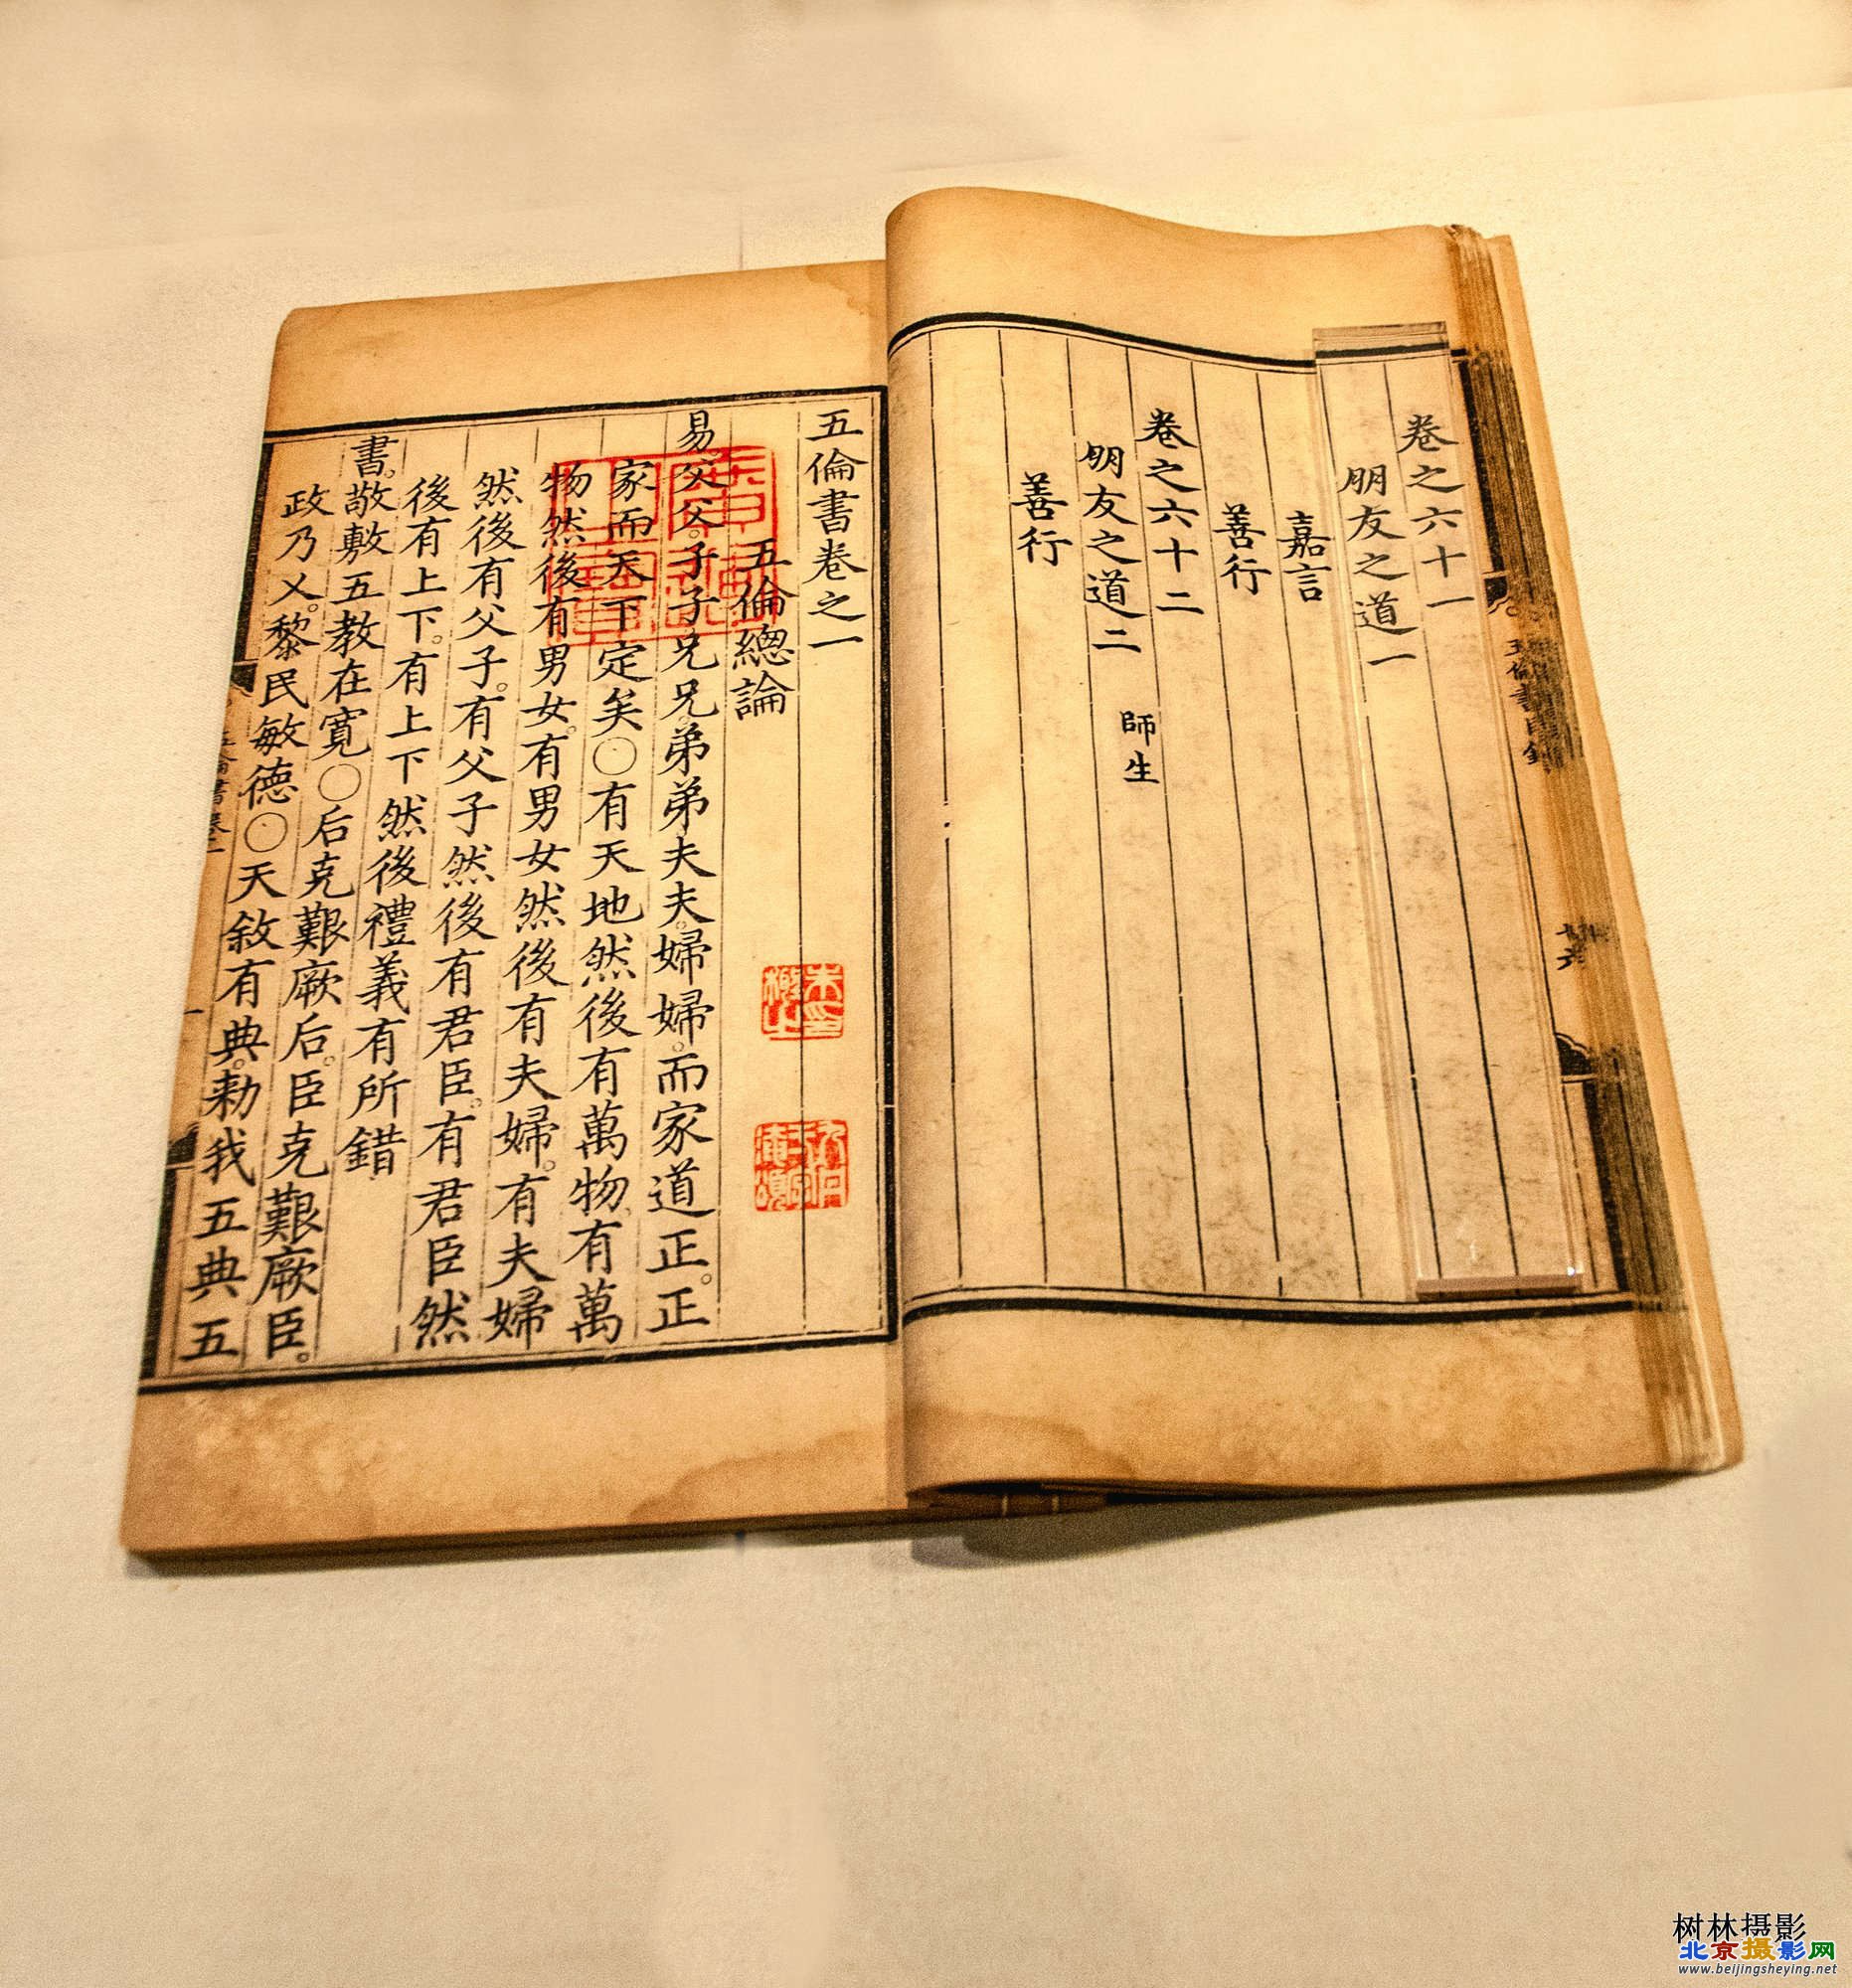 卷之六十一
朋友之道一
嘉言
善行
卷之六十二
朋友之道二 師生
善行
五倫書卷之一
五倫總論
易。父父。子子。兄兄。弟弟。夫夫。婦婦。而家道正。正
家而天下定矣○有天地然後有萬物。有萬
物然後有男女。有男女然後有夫婦。有夫婦
然後有父子。有父子然後有君臣。有君臣然
後有上下。有上下然後禮義有所錯
書。敬敷五教在寬○后克艱厥后。臣克艱厥臣。
政乃乂。黎民敏德○天敘有典。勑我五典五
树林摄影
北京摄影网
www.beijingsheying.net